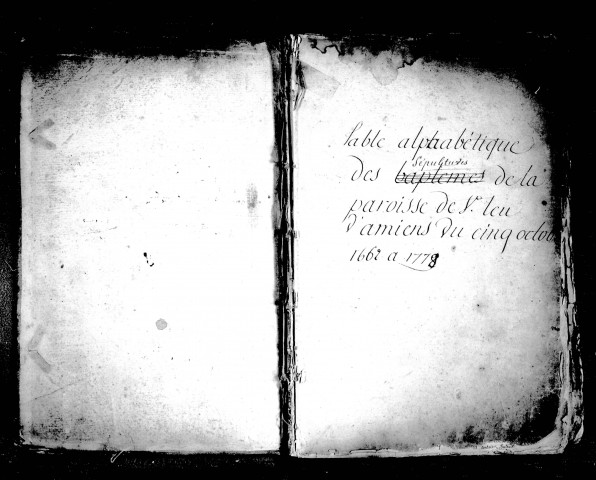 Table alphabétique
Sépultures
des baptemes de la
paroisse de St. leu
d'amiens du cinq octob
1662 a 1778